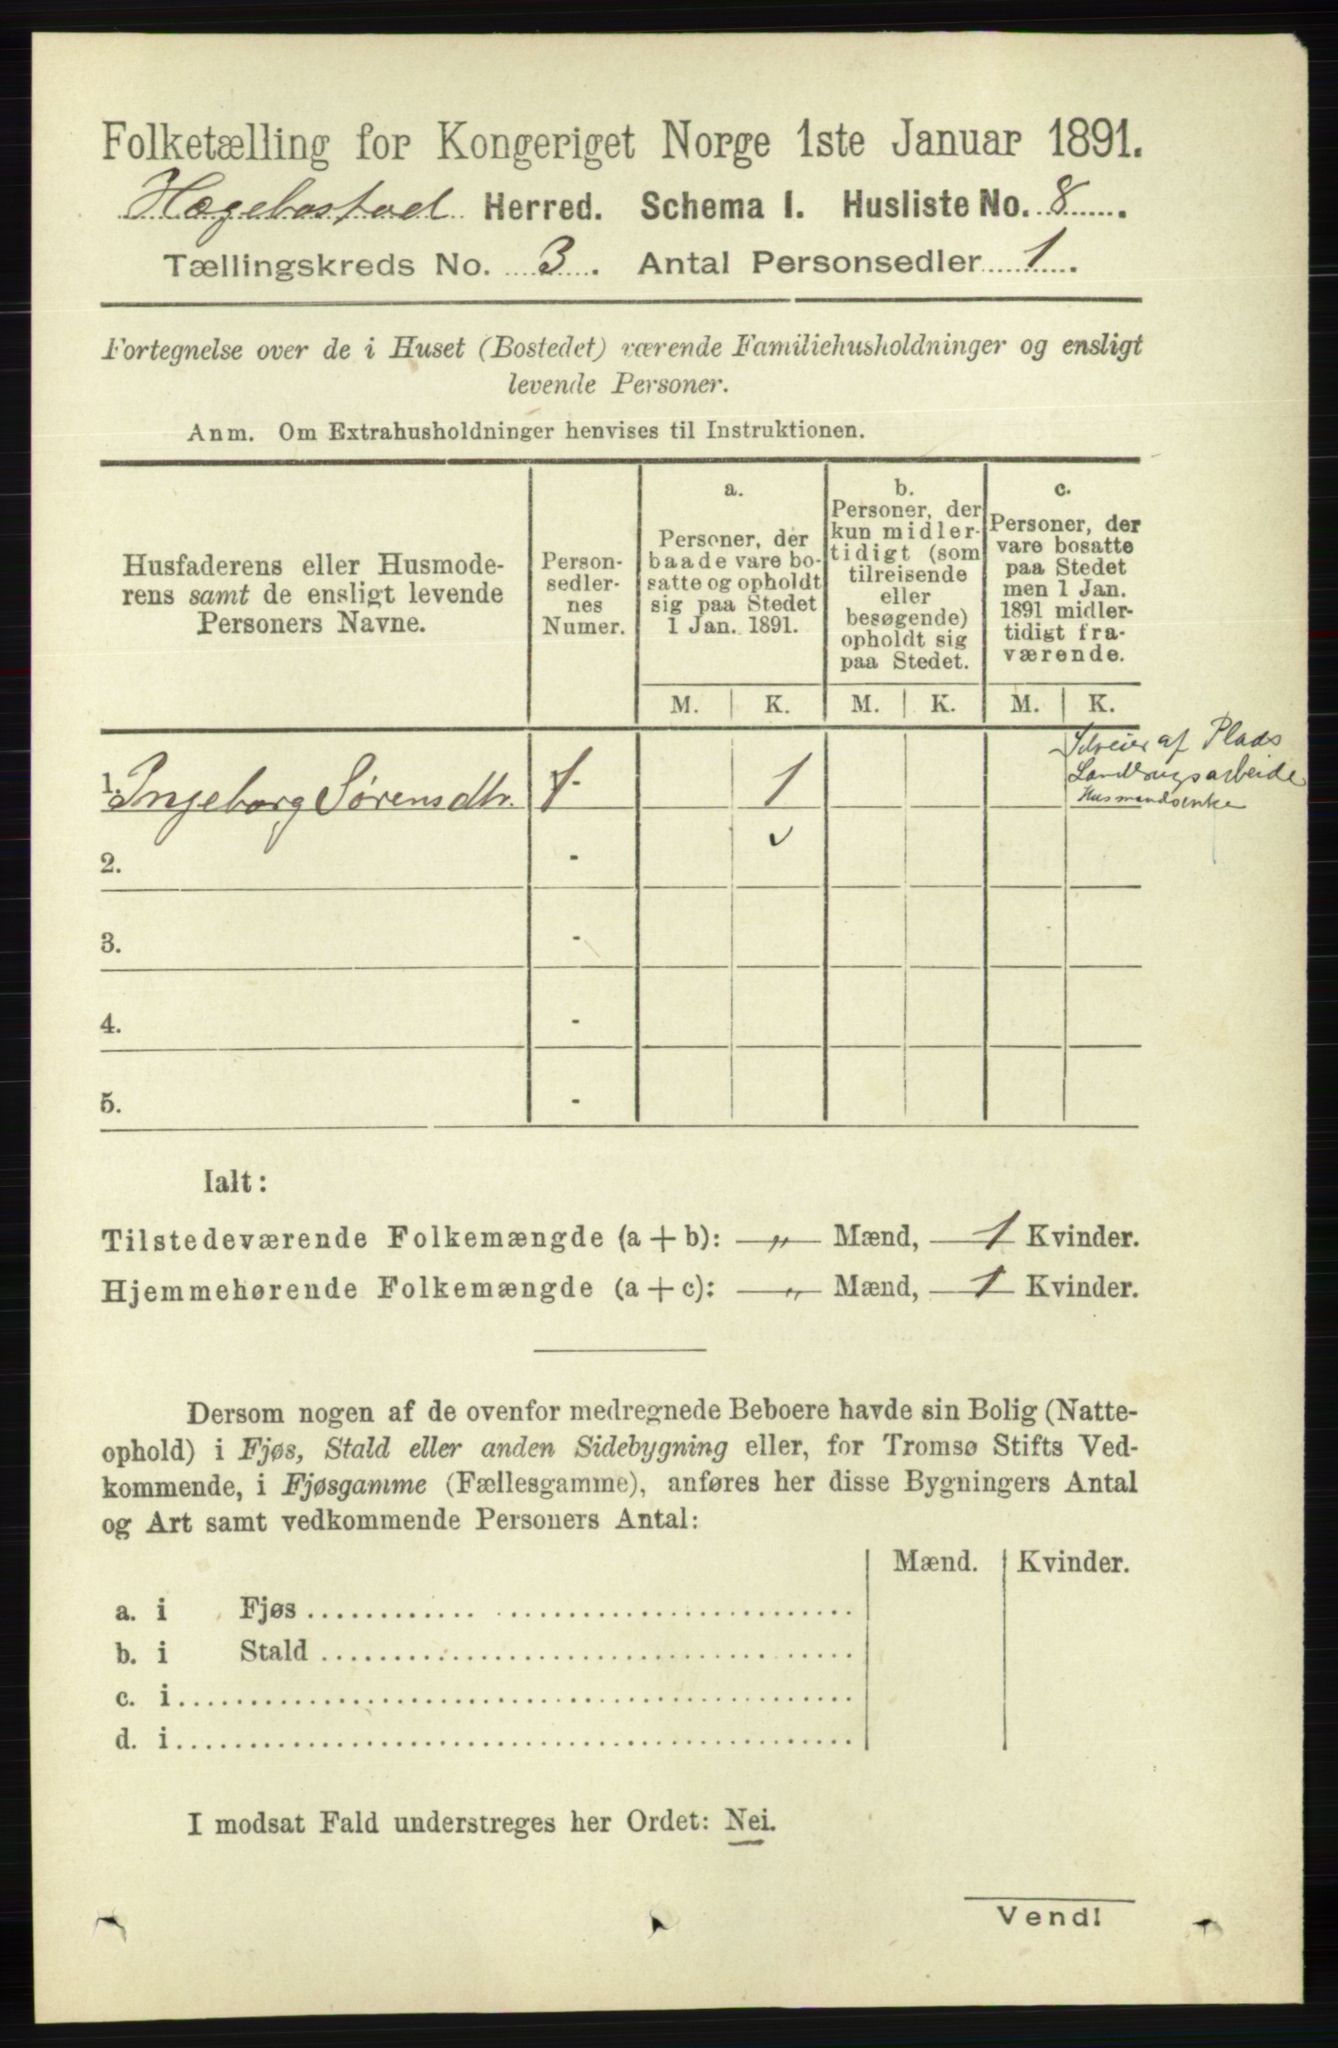 Folketælling for Kongeriget Norge 1ste Januar 1891.
Hægebostad Herred. Schema I. Husliste No. 8
Tællingskreds No. 3. Antal Personsedler 1.
Fortegnelse over de i Huset (Bostedet) værende Familiehusholdninger og ensligt
levende Personer.
Anm. Om Extrahusholdninger henvises til Instruktionen.
Husfaderens eller Husmode-
rens samt de ensligt levende
Personers Navne.
Person-
sedler-
nes
Numer.
a.
Personer, der
baade vare bo-
satte og opholdt
sig paa Stedet
1 Jan. 1891.
b.
Personer, der
kun midler-
tidigt (som
tilreisende
eller
besøgende)
opholdt sig
paa Stedet.
c.
Personer, der
vare bosatte
paa Stedet
men 1 Jan.
1891 midler-
tidigt fra-
værende.
M. K. M. K. M. K.
1. Ingeborg Sørensdtr. 1 - 1
Selveier af Plads
Landbrugsarbeide
Husmandsenke
2. -
3. -
4. -
5. -
Ialt:
Tilstedeværende Folkemængde (a + b): „ Mænd, 1 Kvinder.
Hjemmehørende Folkemængde (a + c): „ Mænd, 1 Kvinder.
Dersom nogen af de ovenfor medregnede Beboere havde sin Bolig (Natte-
ophold) i Fjøs, Stald eller anden Sidebygning eller, for Tromsø Stifts Ved-
kommende, i Fjøsgamme (Fællesgamme), anføres her disse Bygningers Antal
og Art samt vedkommende Personers Antal:
Mænd. Kvinder.
a. i Fjøs
b. i Stald
c. i
d. i
I modsat Fald understreges her Ordet: Nei.
Vend!